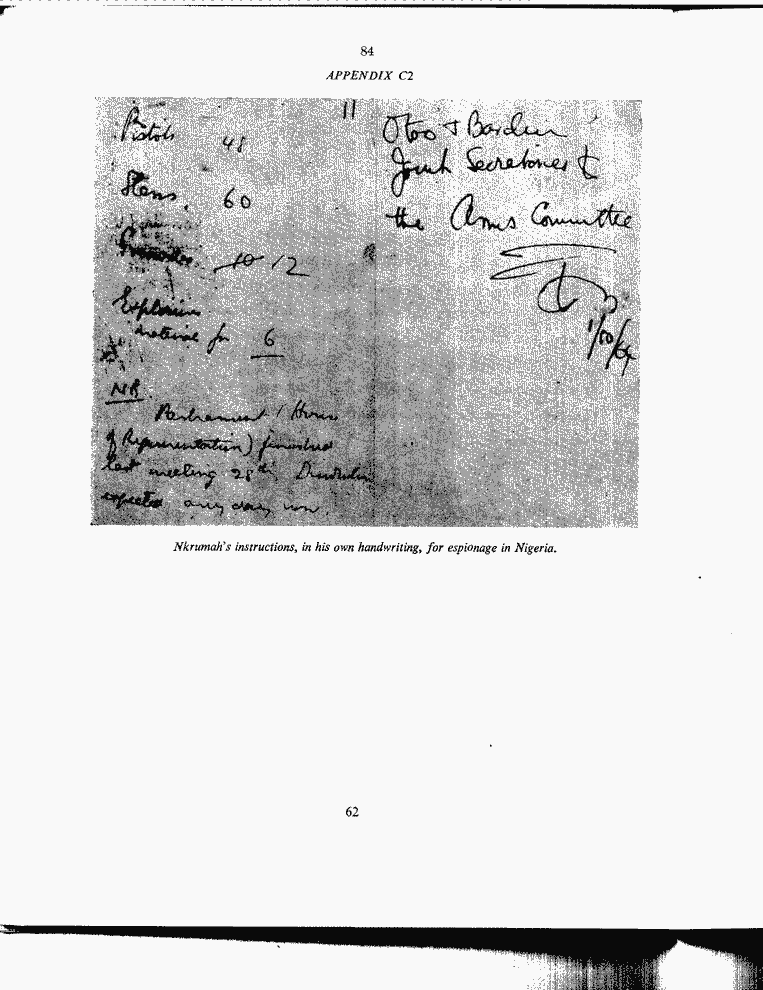 84
APPENDIX C2
Pistols 48
Stens. 60
Grenades 10 12
Explosive
material for 6
NR
Parliament / House
of Representation) finished
last meeting 28th Dissolution
expected any day now.
11
Otoo & Barden
Joint Secretaries to
the Arms Committee
1/10/64
Nkrumah's instructions, in his own handwriting, for espionage in Nigeria.
62